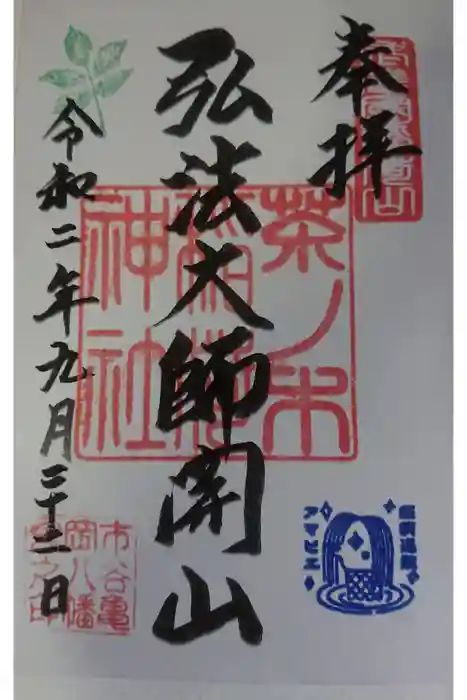 奉拝
弘法大師開山
令和二年九月二十二日
茶ノ木
稲荷
神社
疫病退散
アマビエ
市谷亀
岡八幡
宮之印